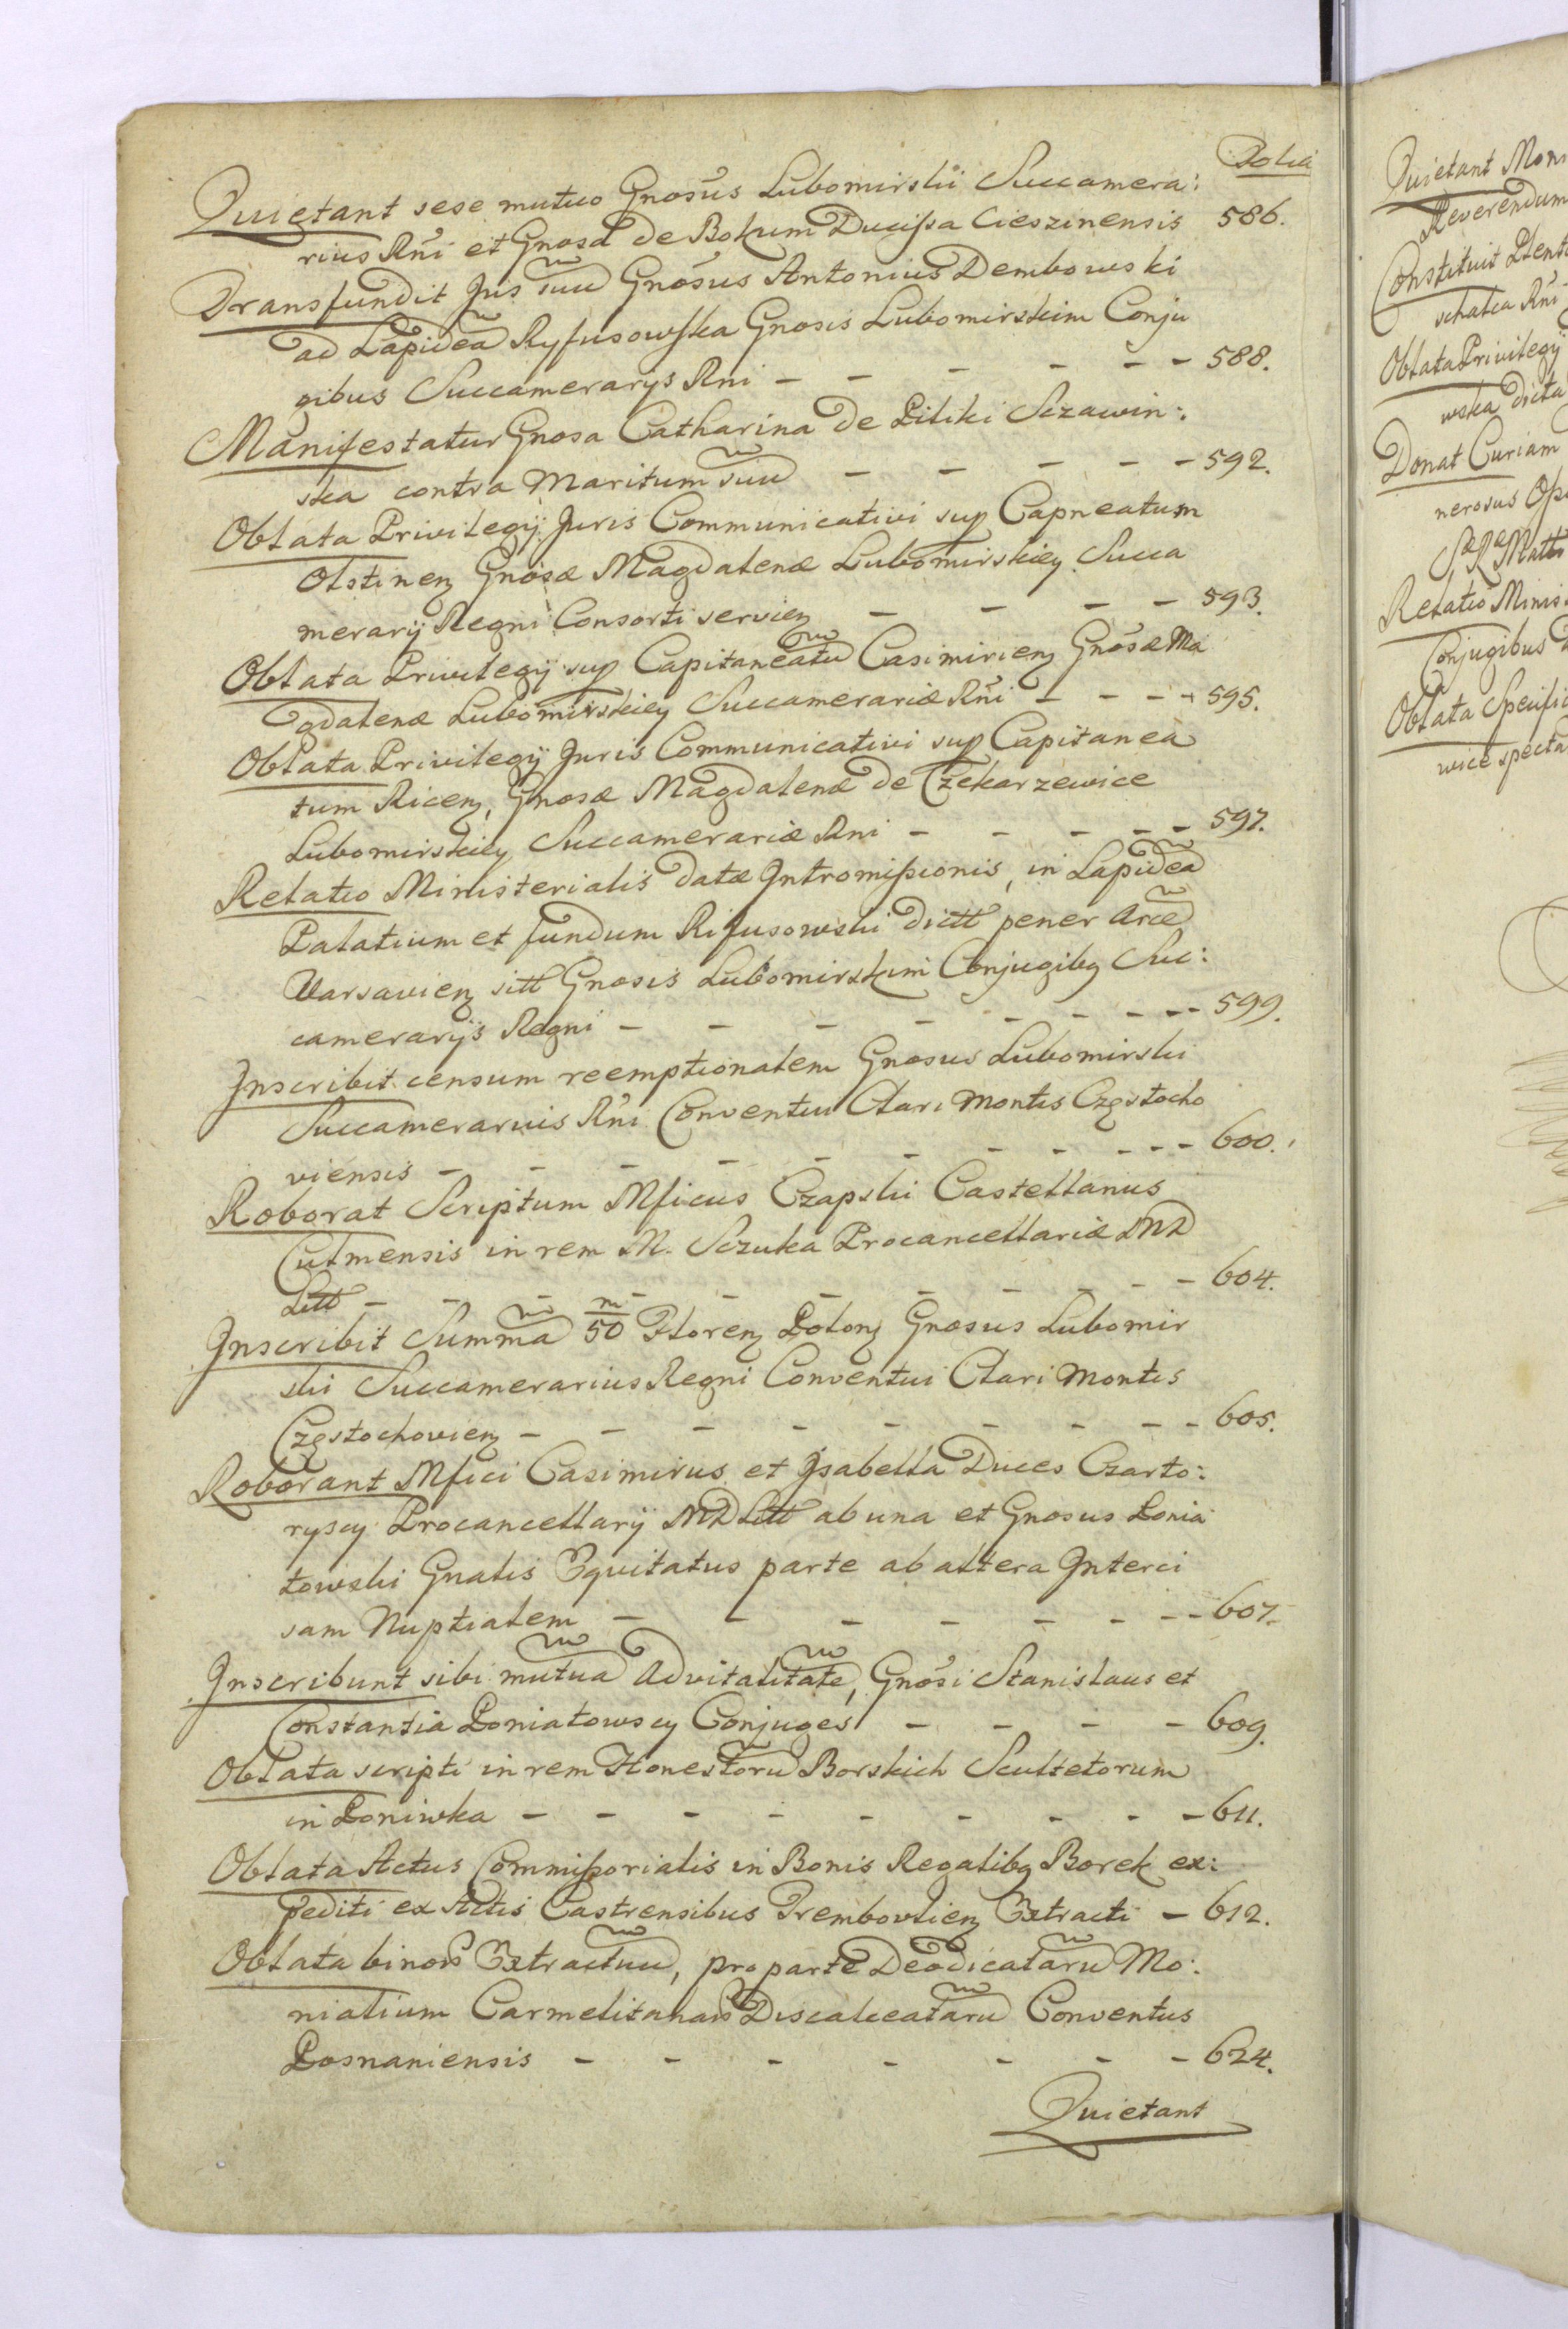 Folia
Quietant sese mutuo Gnosus Lubomirski Succamera:
rius Rni et Gnosa de Bokum Ducissa Cieszinensis 586.
Transfundit Jus suu Gnosus Antonius Dembowski
ad Lapidea Ryfusowska Gnosis Lubomirskim Conju
gibus Succamerarys Rni - - - - - - 588.
Manifestatur Gnosa Catharina de Pilski Sczawin:
ska contra Maritum suu - - - - - 592.
Oblata Privilegij Juris Communicativi sup Capneatum
Olstinen Gnosæ Magdalenæ Lubomirskiey Succa
merarij Regni Consorti servien - - - - 593.
Oblata Privilegij sup Capitaneatu Casimirien Gnosæ Ma
gdalenæ Lubomirskiey Succamerariæ Rni - - - - 595.
Oblata Privilegij Juris Communicativi sup Capitanea
tum Ricen, Gnosæ Magdalenæ de Czekarzewice
Lubomirskiey Succamerariæ Rni - - - - - 597.
Relatio Ministerialis datæ Intromissionis, in Lapidea
Palatium et fundum Rifusowski dictt penes Arce
Varsavien sitt Gnosis Lubomirskim Conjugibq Suc:
camerarijs Regni - - - - - - - - 599.
Inscribit censum reemptionalem Gnosus Lubomirski
Succamerarius Rni Conventui Clari Montis Częstocho
viensis - - - - - - - - - - 600.
Roborat Scriptum Mficus Czapski Castellanus
Culmensis in rem M. Sczuka Procancellariæ MD
Litt - - - - - - - - - 604.
Inscribit Summa m/50 Floren Polon Gnosus Lubomir
ski Succamerarius Regni Conventui Clari Montis
Częstochovien - - - - - - - - - 605.
Roborant Mfici Casimirus et Isabella Duces Czarto:
ryscy Procancellarij MD Litt ab una et Gnosus Ponia
towski Gnalis Equitatus parte ab altera Interci
sam Nuptialem - - - - - - - - 607.
Inscribunt sibi mutua Advitalitate, Gnosi Stanislaus et
Constantia Poniatowscy Conjuges - - - - 609.
Oblata scripti in rem Honestoru Borskich Scultetorum
in Loniwka - - - - - - - - - 611.
Oblata Actus Commissorialis in Bonis Regalibq Borek ex:
pediti ex Actis Castrensibus Trembovlien Extracti - 612.
Oblata binor Extractuu, pro parte Deodicataru Mo:
nialium Carmelitanar Discalceataru Conventus
Posnaniensis - - - - - - - 624.
Quietant
Quietant Mon
Reverendum
Constituit Plent
schalca Rni
Oblata Privilegij
wska dicta
Donat Curiam
nerosus
Relatio Minis
Conjugibus
Oblata Specifi
wice specta